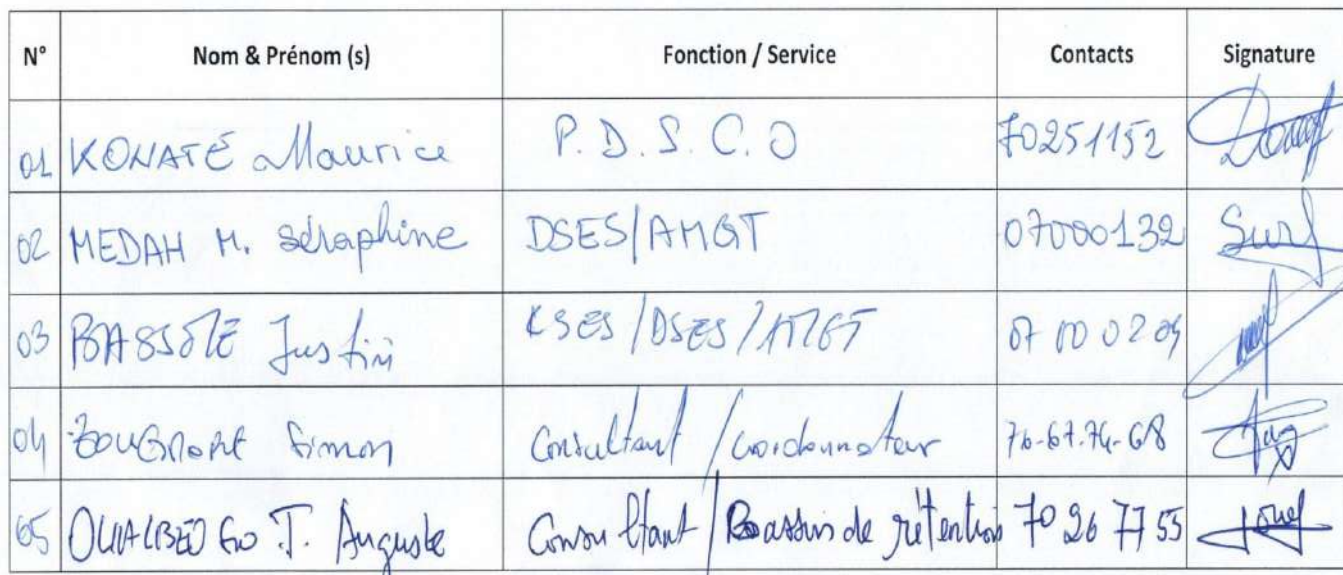 N° Nom & Prénom (s) Fonction / Service Contacts Signature
01 KONATÉ Maurice P. D. S. C. O 70251152
02 MEDAH M. Séraphine DSES/AMGT 07000132
03 BASSOLE Justin DSES/AMGT 07 00 02 09
04 ZOUGMORE Simon Consultant / Coordonnateur 76-67.74-68
05 OUALBEOGO T. Auguste Consultant / Bassin de rétention 70 26 77 55